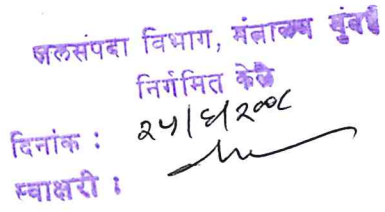 जलसंपदा विभाग, मंत्रालय मुंबई
निर्गमित केले
दिनांक : २५/६/२००८
स्वाक्षरी :